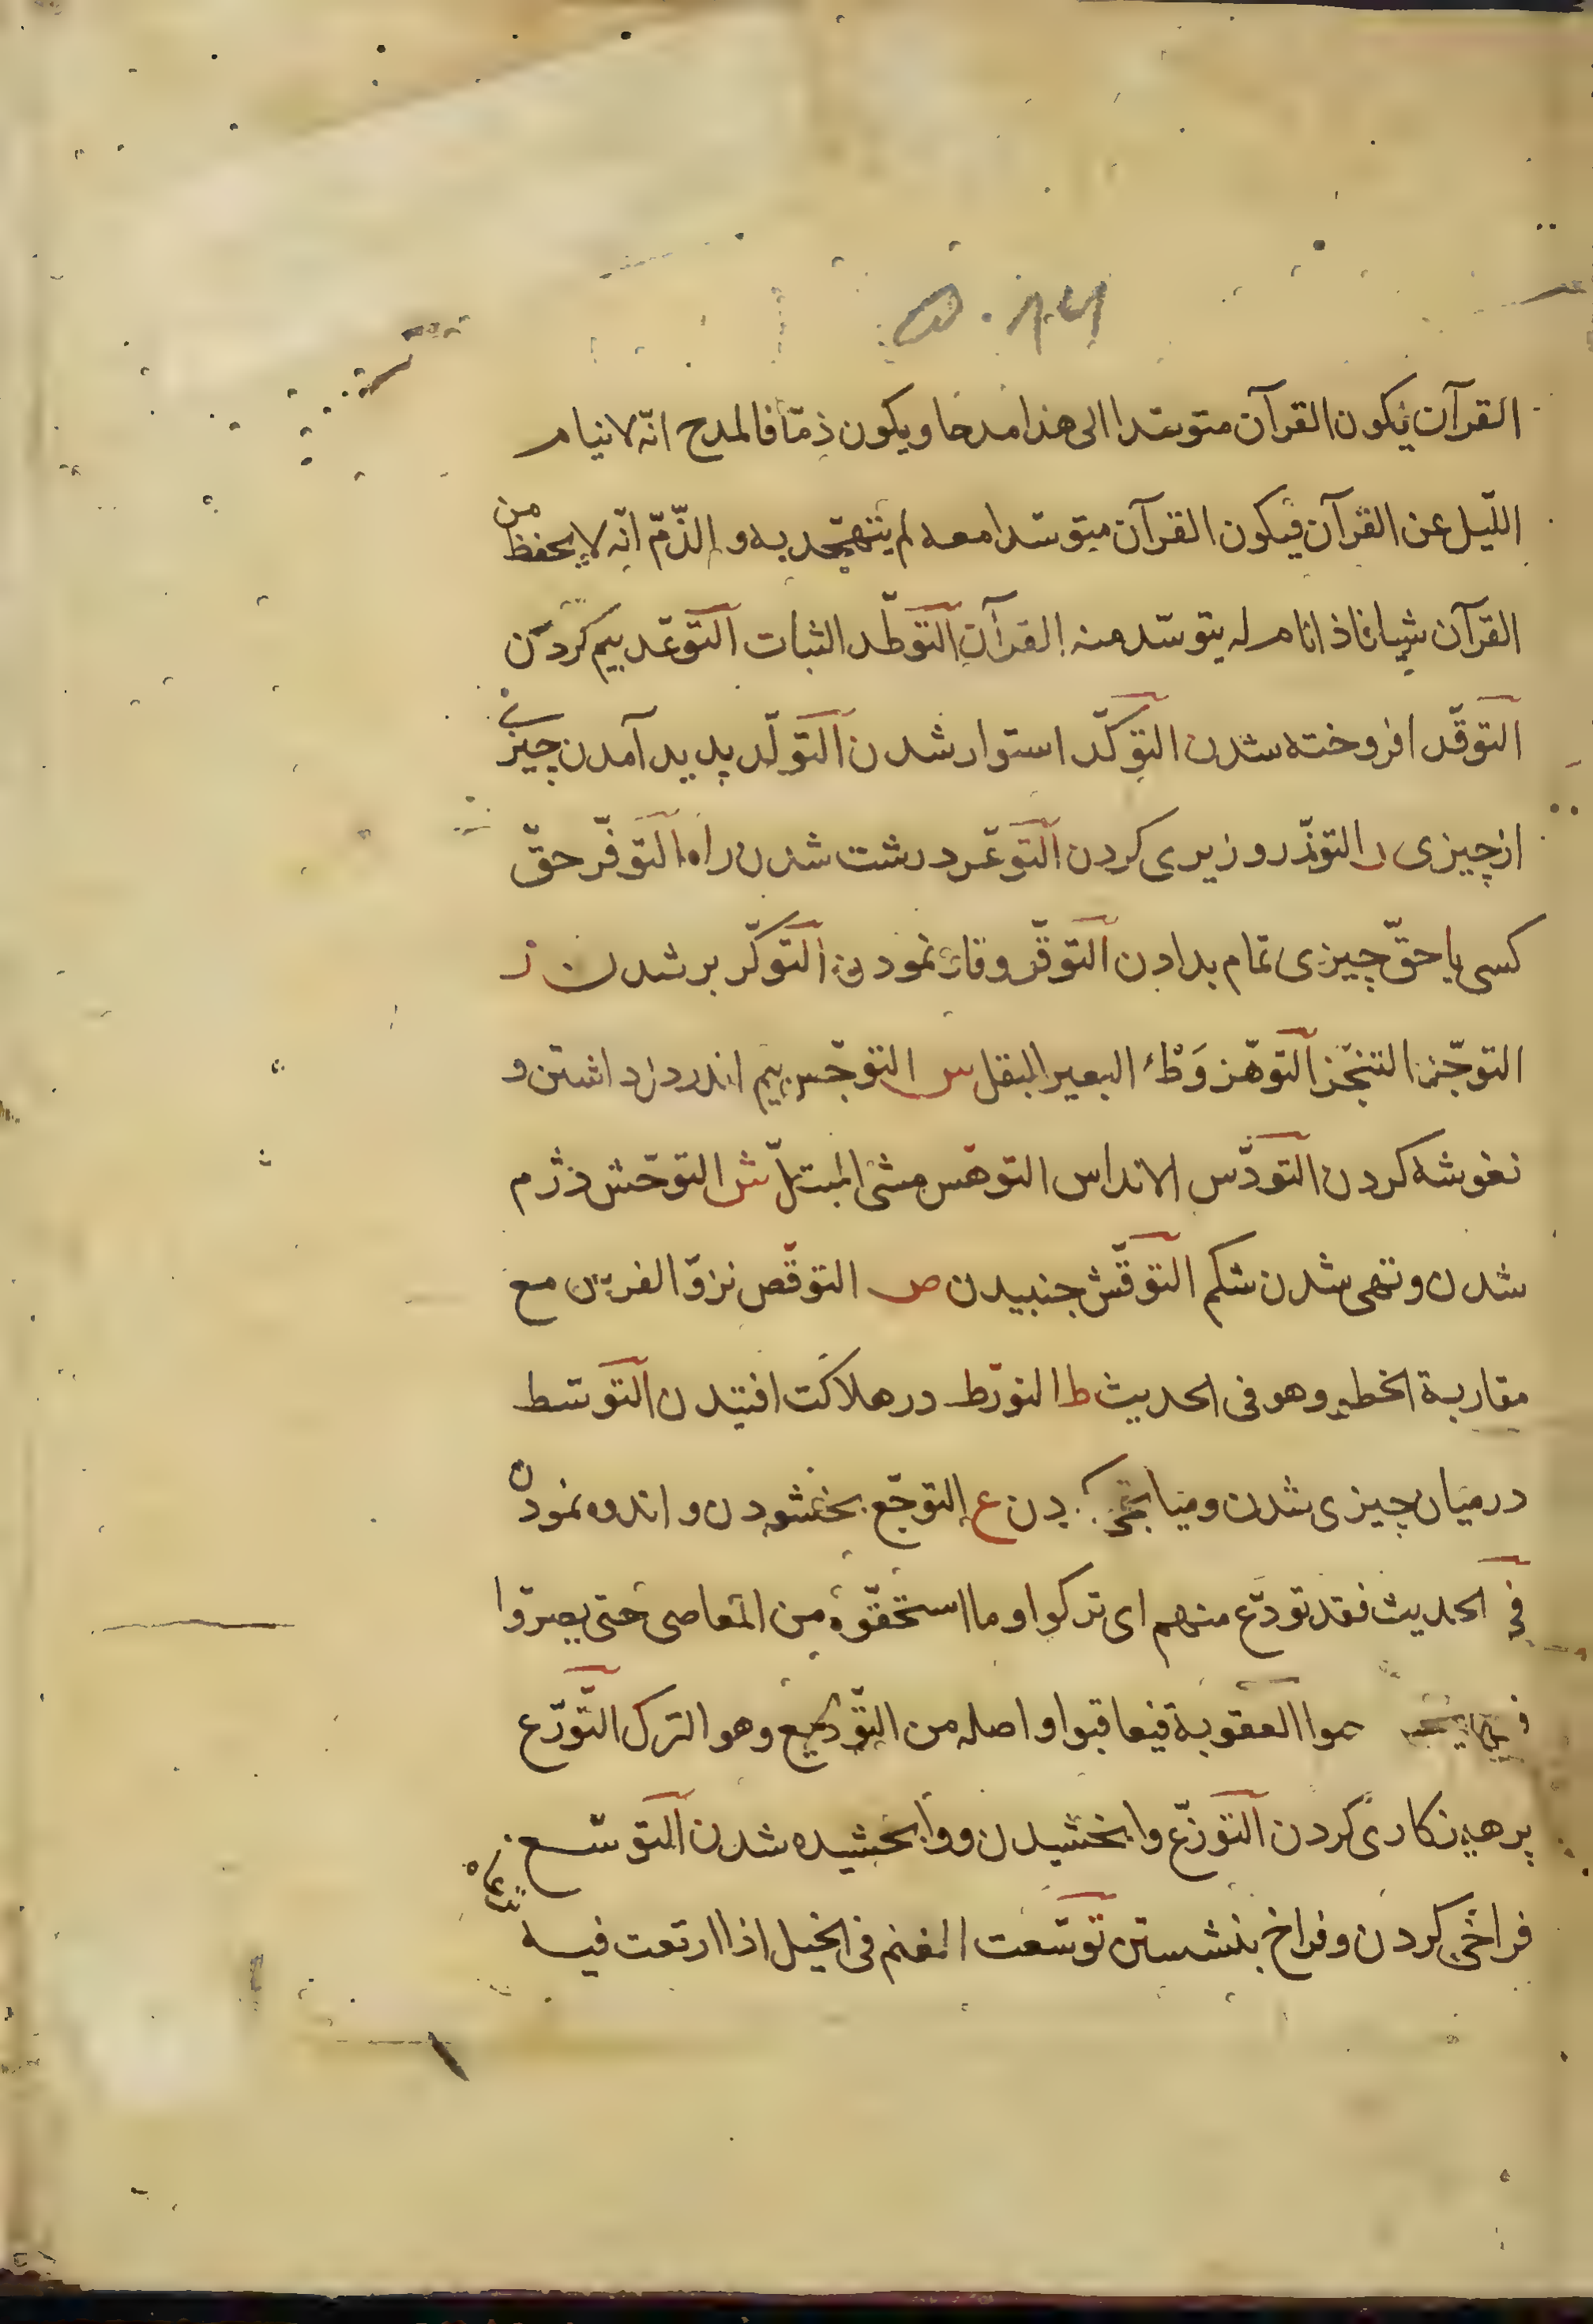 القرآن فيكون القرآن متوسّدا الى هذا مدحا ويكون ذمّا فالمدح انّه لاينام
اللّيل عن القرآن فيكون القرآن متوسّدا معه لم يتهجّد به والذّمّ انّه لايحفظ من
القرآن شيئا فاذا نام لم يتوسّد منه القرآن التوطّد الثبات التوعّد بيم كردن
التوقّد افروخته شدن التوكّد استوار شدن التولّد پديد آمدن چيزى
از چيزى ر التوزّر وزيرى كردن التوعّر درشت شدن راه التوفّر حقّ
كسى يا حقّ چيزى تمام بدادن التوقّر وقار نمودن التوكّر بر شدن ز
التوجّز التنجّز التوهّز وَطْء البعير المثقل س التوجّس بيم اندر دل داشتن و
نغوشه كردن التودّس الاندراس التوهّس مشى المثقل ش التوحّش دژم
شدن وتهى شدن شكم التوقّش جنبيدن ص التوقّص نزوّ الفرس مع
مقاربة الخطو وهو فى الحديث ط التورّط در هلاكت افتيدن التوسّط
در ميان چيزى شدن وميانجى كردن ع التوجّع بخشودن واندوه نمودن
فى الحديث فقد تودّع منهم اى تركوا وما استحقّوه من المعاصى حتى يصرّوا
العقوبة فيعاقبوا واصله من التوديع وهو الترك التورّع
پرهيزكارى كردن التوزّع وابخشيدن ووابخشيده شدن التوسّع
فراخى كردن وفراخ بنشستن توسّعت الغنم فى الخيل اذا ارتعت فيه